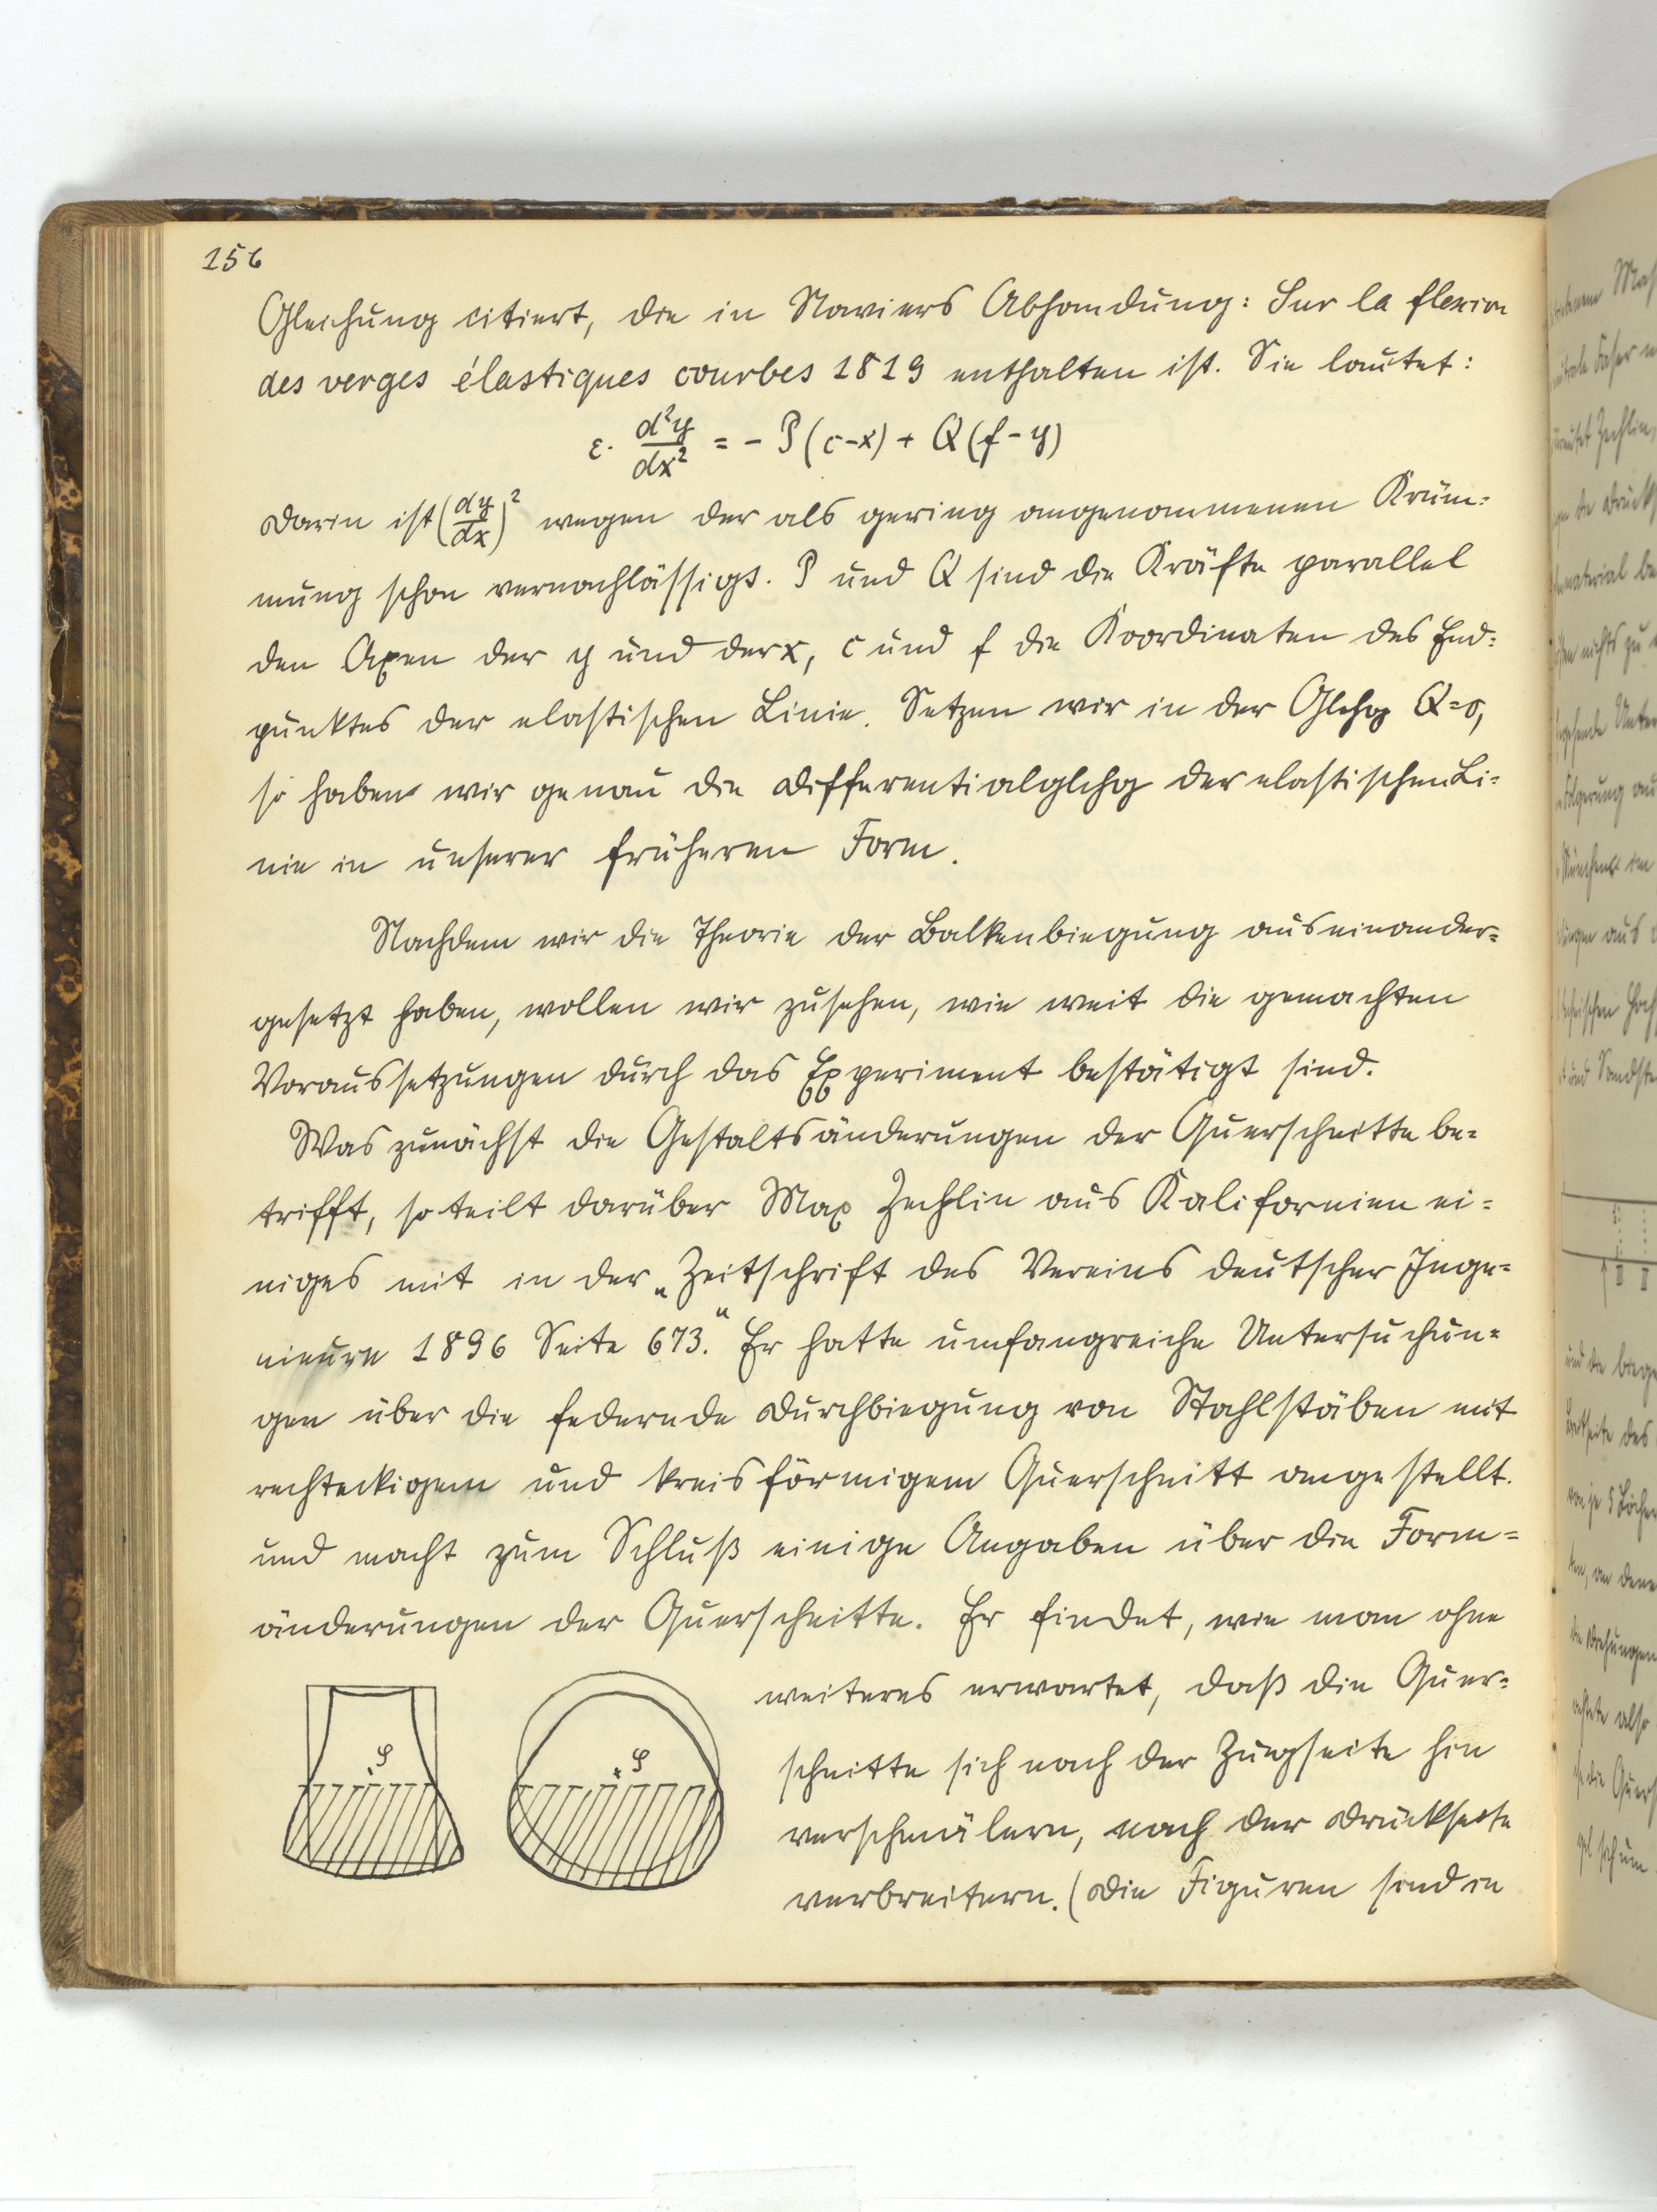 156
Gleichung citiert, die in Naviers Abhandung: Sur la flexion
des verges élastiques courbes 1819 enthalten ist. Sie lautet:
ε· d²y/dx² = - P(c-x) + Q(f-y)
Darin ist (dy/dx)² wegen der als gering angenommenen Krüm=
mung schon vernachlässigt. P und Q sind die Kräfte parallel
den Axen der y und der x, c und f die Koordinaten des End=
punktes der elastischen Linie. Setzen wir in der Glchg Q=0,
so haben wir genau die Differentialglchg der elastischen Li=
nie in unserer früheren Form.
Nachdem wir die Theorie der Balkenbiegung auseinander=
gesetzt haben, wollen wir zusehen, wie weit die gemachten
Voraussetzungen durch das Experiment bestätigt sind.
Was zunächst die Gestaltsänderungen der Querschnitte be=
trifft, so teilt darüber Max Zechlin aus Kalifornien ei=
niges mit in der „Zeitschrift des Vereins deutscher Inge=
nieure 1896 Seite 673.“ Er hatte umfangreiche Untersuchun=
gen über die federnde Durchbiegung von Stahlstäben mit
rechteckigem und kreisförmigem Querschnitt angestellt.
und macht zum Schluß einige Angaben über die Form=
änderungen der Querschnitte. Er findet, wie man ohne
weiteres erwartet, daß die Quer=
schnitte sich nach der Zugseite hin
verschmälern, nach der Druckseite
verbreitern. (Die Figuren sind in
φ
φ